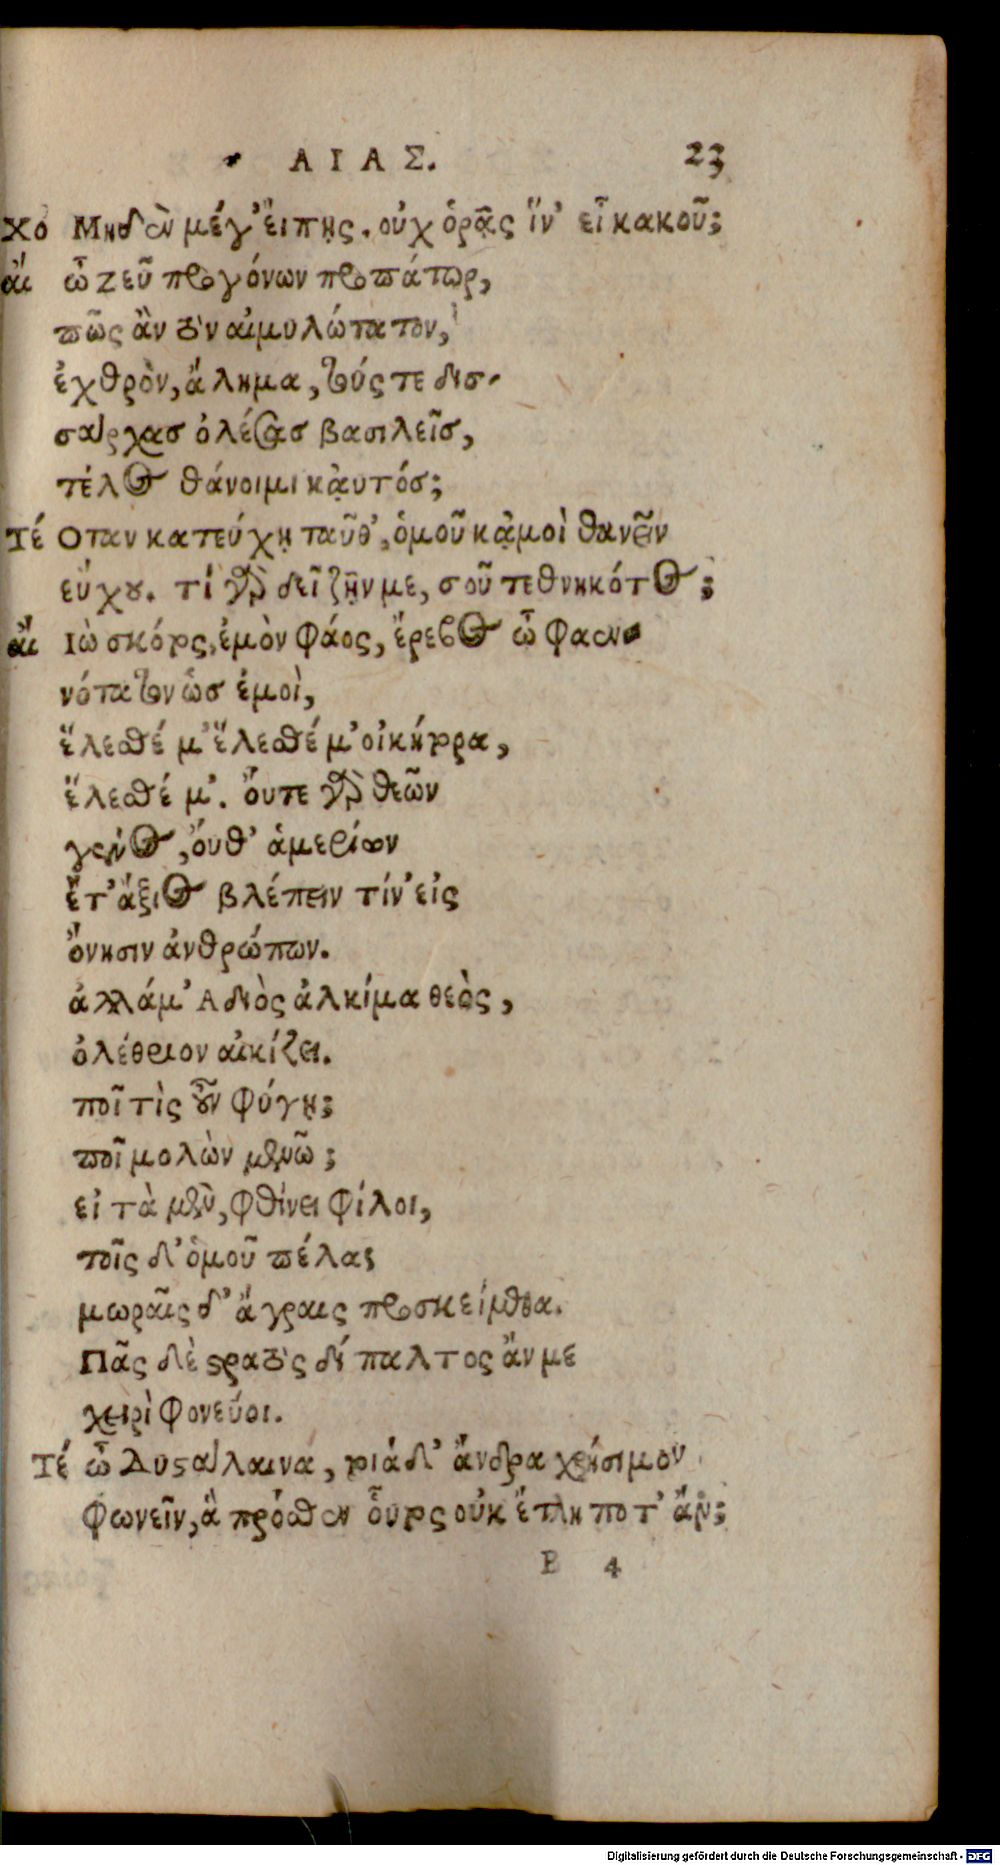 ΑΙΑΣ. 23
χο Μηδὲν μέγ' εἴπῃς. οὐχ ὁρᾷς ἵν' εἶ κακοῦ;
αἴ ὦ Ζεῦ προγόνων προπάτωρ,
πῶς ἂν τὸν αἱμυλώτατον,
ἐχθρὸν, ἄλημα, τούς τε δισ-
σάρχας ὀλέσας βασιλεῖς,
τέλος θάνοιμι καὐτός;
Τέ Οταν κατεύχῃ ταῦθ', ὁμοῦ κᾀμοὶ θανεῖν
εὔχου. τί γὰρ δεῖ ζῇν με, σοῦ τεθνηκότος;
αἴ Ιὼ σκότος, ἐμὸν φάος, ἔρεβος ὦ φαεν-
νότατον ὡς ἐμοὶ,
ἕλεσθέ μ' ἕλεσθέ μ' οἰκήτορα,
ἕλεσθέ μ'. οὔτε γὰρ θεῶν
γένος, οὔθ' ἁμερίων
ἔτ' ἄξιος βλέπειν τίν' εἰς
ὄνησιν ἀνθρώπων.
ἀλλά μ' Α διὸς ἀλκίμα θεὸς,
ὀλέθριον αἰκίζει.
ποῖ τὶς οὖν φύγῃ;
ποῖ μολὼν μενῶ;
εἰ τὰ μὲν, φθίνει φίλοι,
τοῖς δ' ὁμοῦ πέλας
μωραῖς δ' ἄγραις προσκείμεθα.
Πᾶς δὲ στρατὸς δίπαλτος ἄν με
χειρὶ φονεύοι.
Τέ ὦ Δυστάλαινα, τοιάδ' ἄνδρα χρήσιμον
φωνεῖν, ἃ πρόσθεν οὗτος οὐκ ἔτλη ποτ' ἄν;
B 4
Digitalisierung gefördert durch die Deutsche Forschungsgemeinschaft - DFG